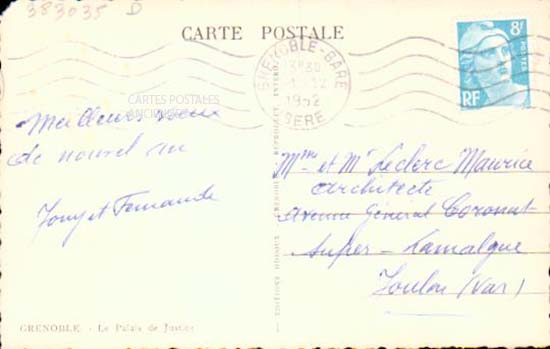 383035 D
CARTE POSTALE
8F
POSTES
RF
GRENOBLE-GARE
13H30
1-12
1952
ISERE
CARTES POSTALES
ANCIENNES
Meilleurs vœux
de nouvel an
Tony et Fernande
Mme et Mr Leclerc Maurice
Architecte
Avenue Général
Super-Lamalgue
Toulon (Var)
GRENOBLE - Le Palais de Justice